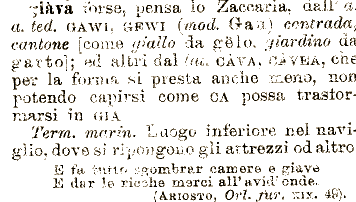 giàva forse, pensa lo Zaccaria, dall'a.
a. ted. GAWI, GEWI (mod. Gau) contrada,
cantone [come giallo da gëlo, giardino da
garto]; ed altri dal lat. CÀVA, CÀVEA, che
per la forma si presta anche meno, non
potendo capirsi come CA possa trasfor-
marsi in GIA
Term. marin. Luogo inferiore nel navi-
glio, dove si ripongono gli attrezzi od altro
E fa tutto sgombrar camere e giave
E dar le ricche merci all'avid'onde.
(ARIOSTO, Orl. fur. XIX. 49).